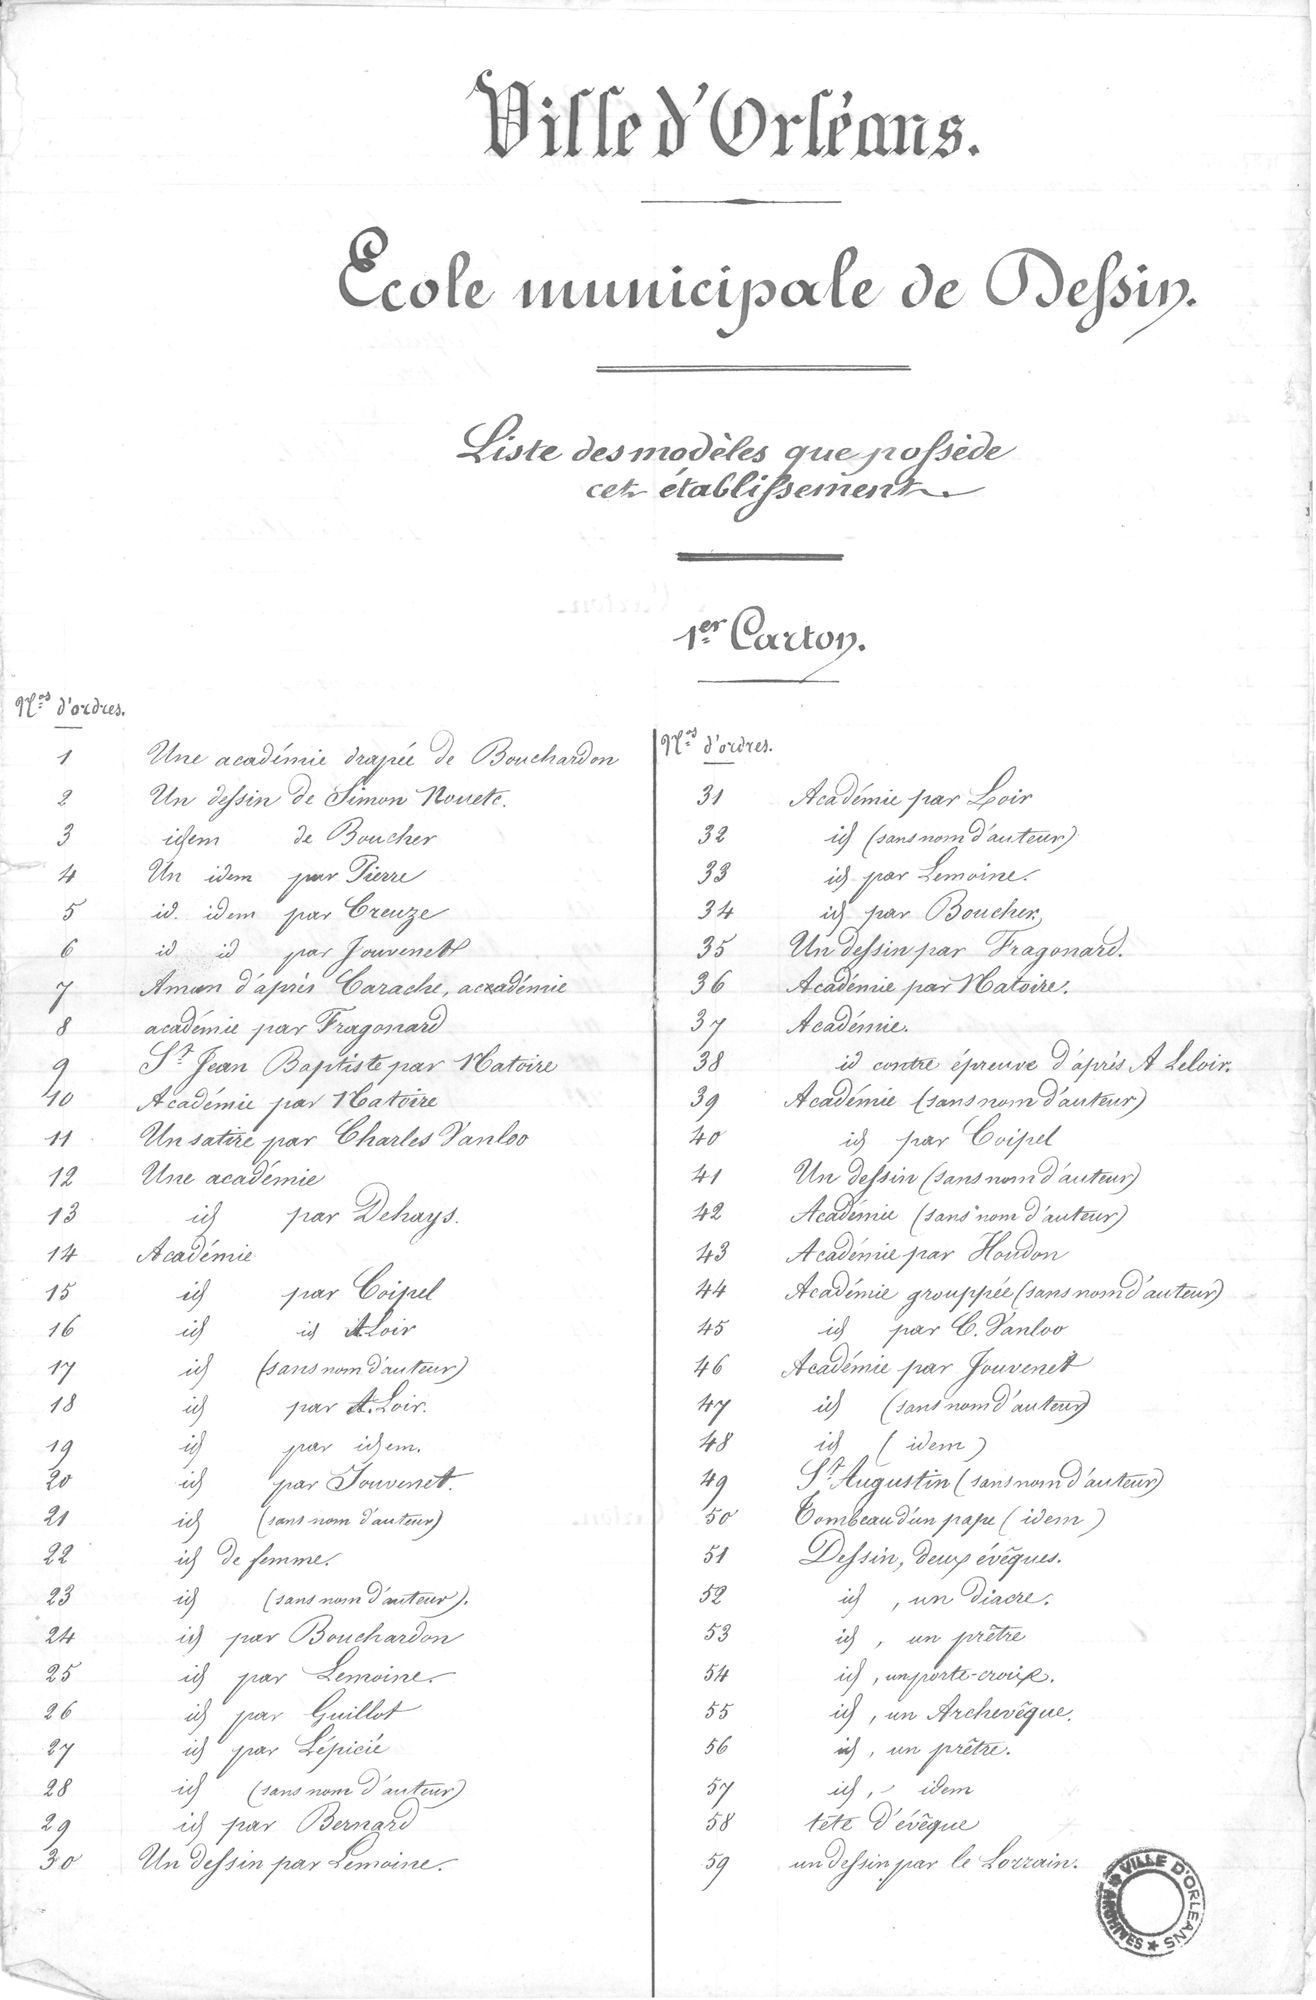 Ville d'Orléans.
Ecole municipale de Dessin.
Liste des modèles que possède
cet établissement.
1er Carton.
Nos d'ordres.
1 Une académie drapée de Bouchardon
2 Un dessin de Simon Vouete.
3 idem de Boucher
4 Un idem par Pierre
5 id. idem par Creuze
6 id id par Jouvenet
7 Aman d'après Carache, académie
8 académie par Fragonard
9 St Jean Baptiste par Natoire
10 Académie par Natoire
11 Un satire par Charles Vanloo
12 Une académie
13 id par Dehays.
14 Académie
15 id par Coipel
16 id id A. Loir
17 id (sans nom d'auteur)
18 id par A. Loir.
19 id par idem.
20 id par Jouvenet.
21 id (sans nom d'auteur)
22 id de femme.
23 id (sans nom d'auteur).
24 id par Bouchardon
25 id par Lemoine.
26 id par Guillot
27 id par Lépicié
28 id (sans nom d'auteur)
29 id par Bernard
30 Un dessin par Lemoine.
Nos d'ordres.
31 Académie par Loir
32 id (sans nom d'auteur)
33 id par Lemoine.
34 id par Boucher.
35 Un dessin par Fragonard.
36 Académie par Natoire.
37 Académie.
38 id contre épreuve d'après A Leloir.
39 Académie (sans nom d'auteur)
40 id par Coipel
41 Un dessin (sans nom d'auteur)
42 Académie (sans nom d'auteur)
43 Académie par Houdon
44 Académie grouppée (sans nom d'auteur)
45 id par C. Vanloo
46 Académie par Jouvenet
47 id (sans nom d'auteur)
48 id (idem)
49 St Augustin (sans nom d'auteur)
50 Tombeau d'un pape (idem)
51 Dessin, deux évêques.
52 id, un diacre.
53 id, un prêtre
54 id, un porte-croix.
55 id, un Archevêque.
56 id, un prêtre.
57 id, idem
58 tête d'évêque
59 un dessin par le Lorrain.
VILLE D'ORLÉANS
ARCHIVES